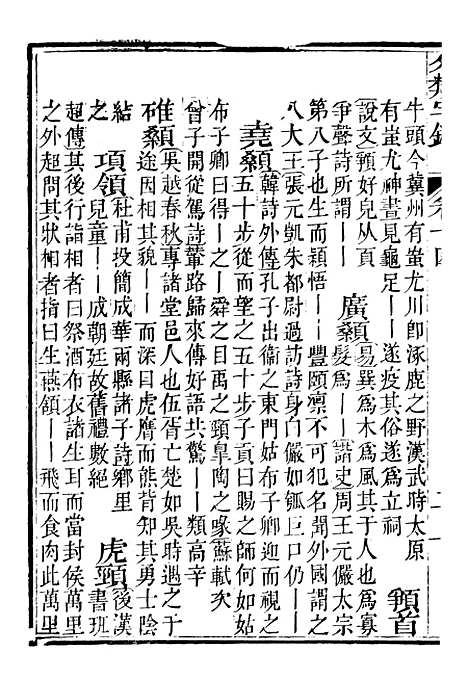 分類字錦　卷十四
牛頭今冀州有蚩尤川卽涿鹿之野漢武時太原
有蚩尤神晝見龜足｜｜遂疫其俗遂爲立祠　䫜首
說文䫜好皃从頁
爭聲詩所謂｜｜
廣顙　易巽爲木爲風其人也爲寡
髮爲｜｜　諧史周王元儼太宗
第八子也生而穎悟｜｜豐頤凜不可犯名聞外國謂之
八大王張元凱朱都尉過訪詩身白儼如瓠巨口仍｜｜
堯顙　韓詩外傳孔子出衛之東門姑布子卿迎而視之
五十步從而望之五十步子貢曰賜之師何如姑
布子卿曰得｜之｜｜舜之目禹之頸皐陶之喙蘇軾次
曾子開從駕詩輦路歸來傳好語共驚｜｜類高辛
碓顙　吳越春秋專諸堂邑人也伍胥亡楚如吳時遇之于
途因相其貌｜｜而深目虎膺而熊背知其勇士陰
結
之
項領　杜甫投簡成華兩縣諸子詩鄉里
兒童｜｜成朝廷故舊禮數絕
虎頸　後漢
書班
超傳其後行詣相者曰祭酒布衣諸生耳而當封侯萬里
之外超問其狀相者指曰生燕頷｜｜飛而食肉此萬里